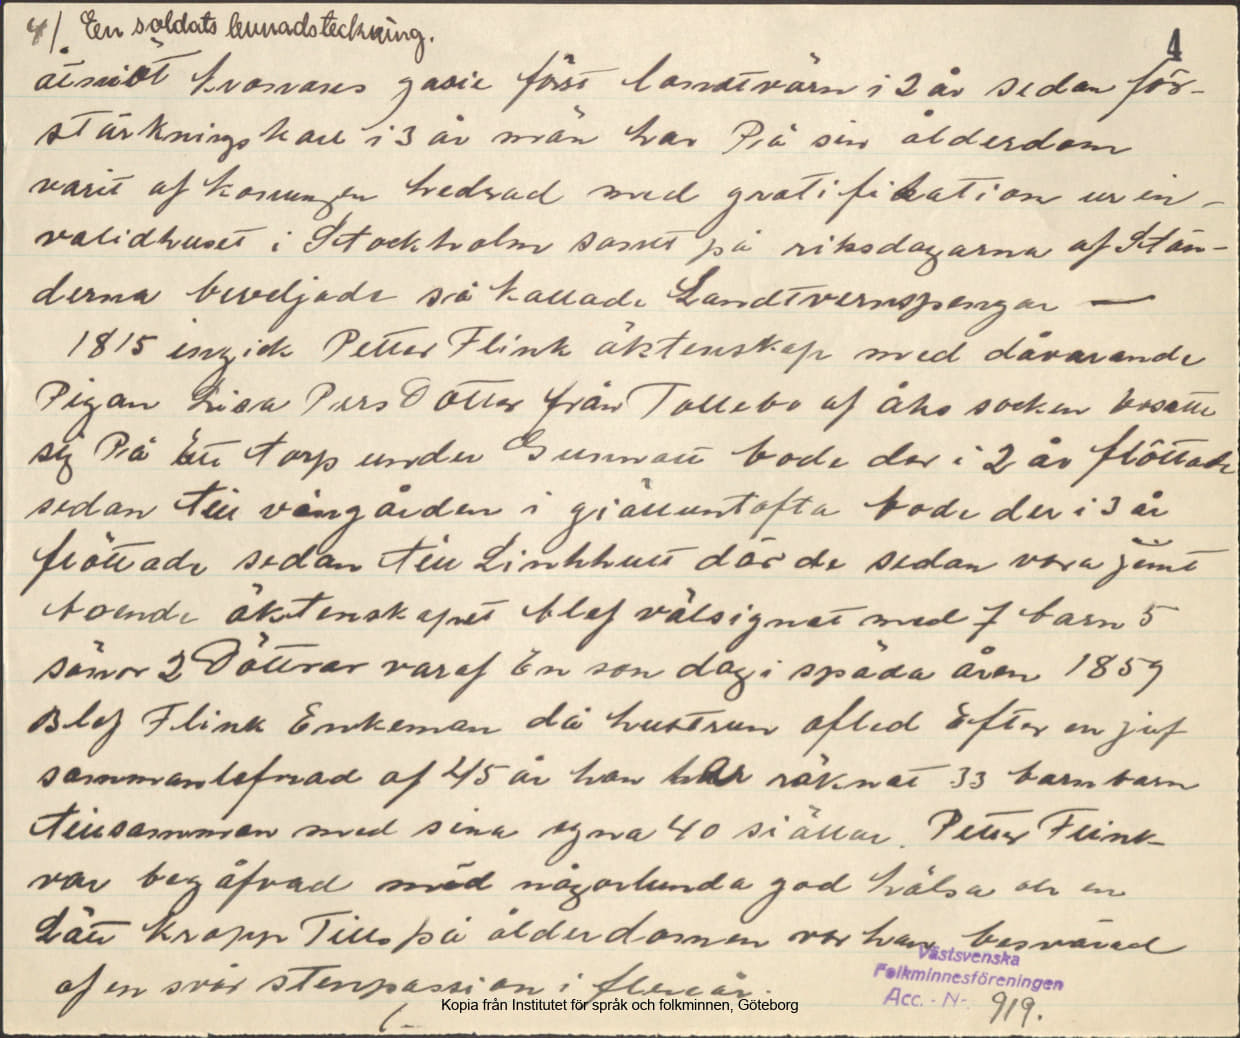 4/ En soldats levnadsteckning.
4
åtniöt kronans gasie först landtvärn i 2 år sedan för-
stärkningskarl i 3 år män har På sin ålderdom
varit af konungen hedrad med gratifikation ur in-
validhuset i Stockholm samt på riksdagarna af Stän-
derna beveljade så kallade Landtvernspengar —
1815 ingick Petter Flink äktenskap med dåvarande
Pigan Lisa Pers Dotter från Tollebo af åks socken bosatte
sig På Ett torp under Gunnatt bode der i 2 år flöttade
sedan till vångården i giälluntofta bode der i 3 år
flöttade sedan till Linkhult där de sedan vora jämt
boende äktenskapet blef välsignat med 7 barn 5
söner 2 Döttrar varaf En son dog i späda åren 1859
Blef Flink Enkeman då hustrun afled Efter en
sammanlefnad af 45 år han har räknat 33 barnbarn
tillsamman med sina egna 40 siällar. Petter Flink
var begåfvad med någorlunda god hälsa och en
Lätt kropp Tills på ålderdomen var han besvärad
af en svår stenpassion i flera år.
Västsvenska
Folkminnesföreningen
Acc. - N-. 919.
Kopia från Institutet för språk och folkminnen, Göteborg